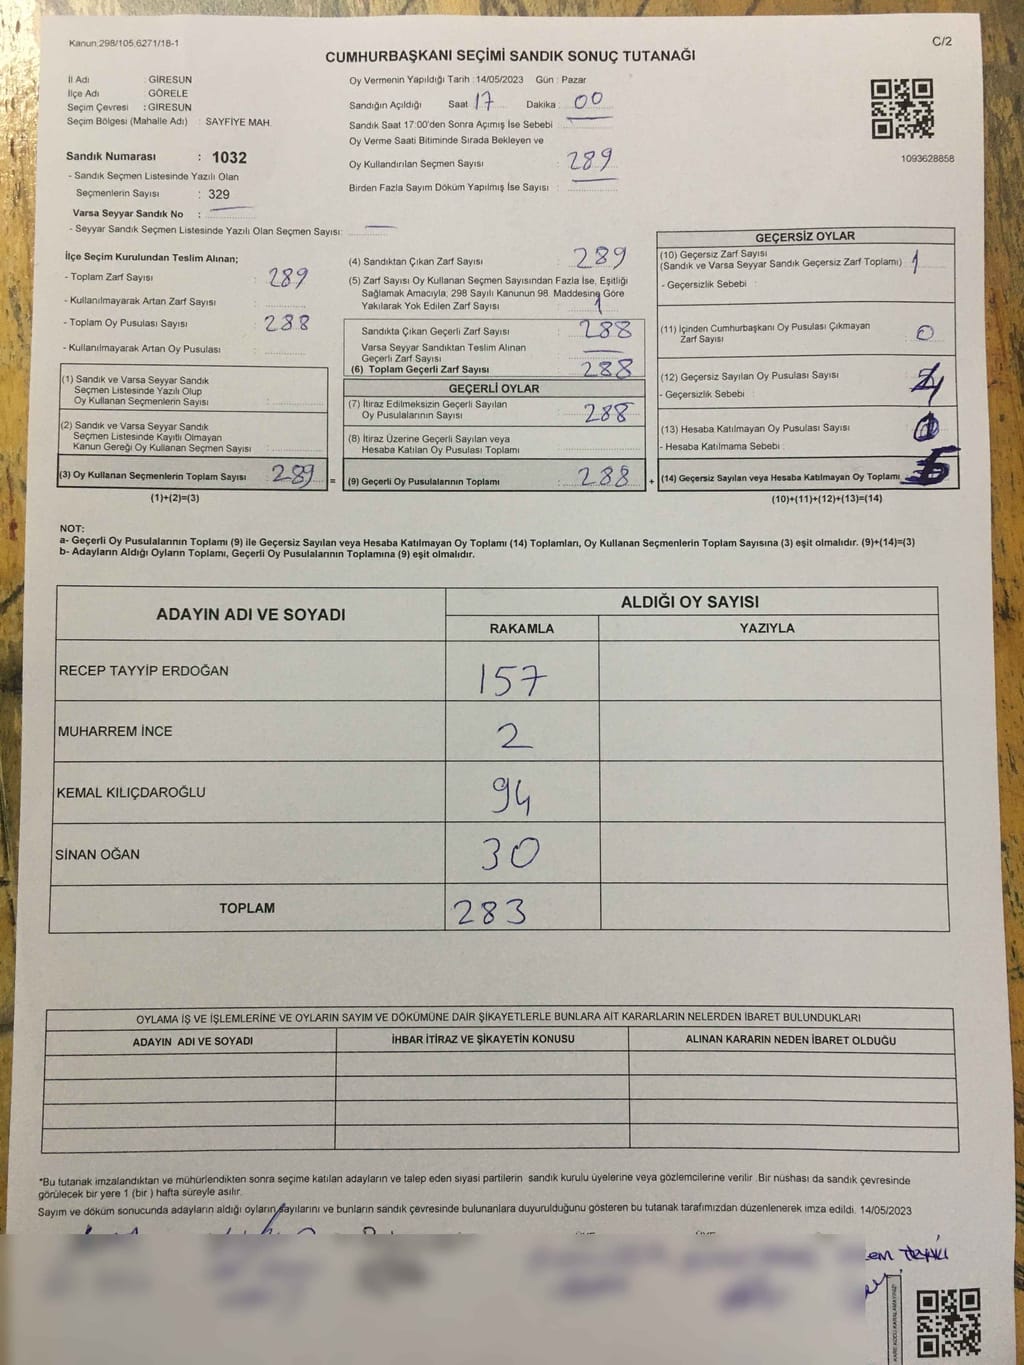 Kanun:298/105,6271/18-1
C/2
CUMHURBAŞKANI SEÇİMİ SANDIK SONUÇ TUTANAĞI
İl Adı : GİRESUN
İlçe Adı : GÖRELE
Seçim Çevresi : GİRESUN
Seçim Bölgesi (Mahalle Adı) : SAYFİYE MAH.
Sandık Numarası : 1032
- Sandık Seçmen Listesinde Yazılı Olan
Seçmenlerin Sayısı : 329
Varsa Seyyar Sandık No :
- Seyyar Sandık Seçmen Listesinde Yazılı Olan Seçmen Sayısı:
Oy Vermenin Yapıldığı Tarih : 14/05/2023 Gün : Pazar
Sandığın Açıldığı Saat 17 Dakika : 00
Sandık Saat 17:00'den Sonra Açımış İse Sebebi :
Oy Verme Saati Bitiminde Sırada Bekleyen ve
Oy Kullandırılan Seçmen Sayısı : 289
Birden Fazla Sayım Döküm Yapılmış İse Sayısı :
1093628858
İlçe Seçim Kurulundan Teslim Alınan;
- Toplam Zarf Sayısı : 289
- Kullanılmayarak Artan Zarf Sayısı :
- Toplam Oy Pusulası Sayısı : 288
- Kullanılmayarak Artan Oy Pusulası :
(1) Sandık ve Varsa Seyyar Sandık
Seçmen Listesinde Yazılı Olup
Oy Kullanan Seçmenlerin Sayısı :
(2) Sandık ve Varsa Seyyar Sandık
Seçmen Listesinde Kayıtlı Olmayan
Kanun Gereği Oy Kullanan Seçmen Sayısı :
(3) Oy Kullanan Seçmenlerin Toplam Sayısı : 289 =
(1)+(2)=(3)
(4) Sandıktan Çıkan Zarf Sayısı : 289
(5) Zarf Sayısı Oy Kullanan Seçmen Sayısından Fazla İse, Eşitliği
Sağlamak Amacıyla, 298 Sayılı Kanunun 98. Maddesine Göre
Yakılarak Yok Edilen Zarf Sayısı : 1
Sandıkta Çıkan Geçerli Zarf Sayısı : 288
Varsa Seyyar Sandıktan Teslim Alınan
Geçerli Zarf Sayısı :
(6) Toplam Geçerli Zarf Sayısı : 288
GEÇERLİ OYLAR
(7) İtiraz Edilmeksizin Geçerli Sayılan
Oy Pusulalarının Sayısı : 288
(8) İtiraz Üzerine Geçerli Sayılan veya
Hesaba Katılan Oy Pusulası Toplamı :
(9) Geçerli Oy Pusulalarının Toplamı : 288 +
GEÇERSİZ OYLAR
(10) Geçersiz Zarf Sayısı
(Sandık ve Varsa Seyyar Sandık Geçersiz Zarf Toplamı) : 1
- Geçersizlik Sebebi :
(11) İçinden Cumhurbaşkanı Oy Pusulası Çıkmayan
Zarf Sayısı : 0
(12) Geçersiz Sayılan Oy Pusulası Sayısı :
- Geçersizlik Sebebi :
(13) Hesaba Katılmayan Oy Pusulası Sayısı :
- Hesaba Katılmama Sebebi :
(14) Geçersiz Sayılan veya Hesaba Katılmayan Oy Toplamı :
(10)+(11)+(12)+(13)=(14)
NOT:
a- Geçerli Oy Pusulalarının Toplamı (9) ile Geçersiz Sayılan veya Hesaba Katılmayan Oy Toplamı (14) Toplamları, Oy Kullanan Seçmenlerin Toplam Sayısına (3) eşit olmalıdır. (9)+(14)=(3)
b- Adayların Aldığı Oyların Toplamı, Geçerli Oy Pusulalarının Toplamına (9) eşit olmalıdır.
ADAYIN ADI VE SOYADI
ALDIĞI OY SAYISI
RAKAMLA YAZIYLA
RECEP TAYYİP ERDOĞAN 157
MUHARREM İNCE 2
KEMAL KILIÇDAROĞLU 94
SİNAN OĞAN 30
TOPLAM 283
OYLAMA İŞ VE İŞLEMLERİNE VE OYLARIN SAYIM VE DÖKÜMÜNE DAİR ŞİKAYETLERLE BUNLARA AİT KARARLARIN NELERDEN İBARET BULUNDUKLARI
ADAYIN ADI VE SOYADI İHBAR İTİRAZ VE ŞİKAYETİN KONUSU ALINAN KARARIN NEDEN İBARET OLDUĞU
*Bu tutanak imzalandıktan ve mühürlendikten sonra seçime katılan adayların ve talep eden siyasi partilerin sandık kurulu üyelerine veya gözlemcilerine verilir. Bir nüshası da sandık çevresinde
görülecek bir yere 1 (bir ) hafta süreyle asılır.
Sayım ve döküm sonucunda adayların aldığı oyların sayılarını ve bunların sandık çevresinde bulunanlara duyurulduğunu gösteren bu tutanak tarafımızdan düzenlenerek imza edildi. 14/05/2023